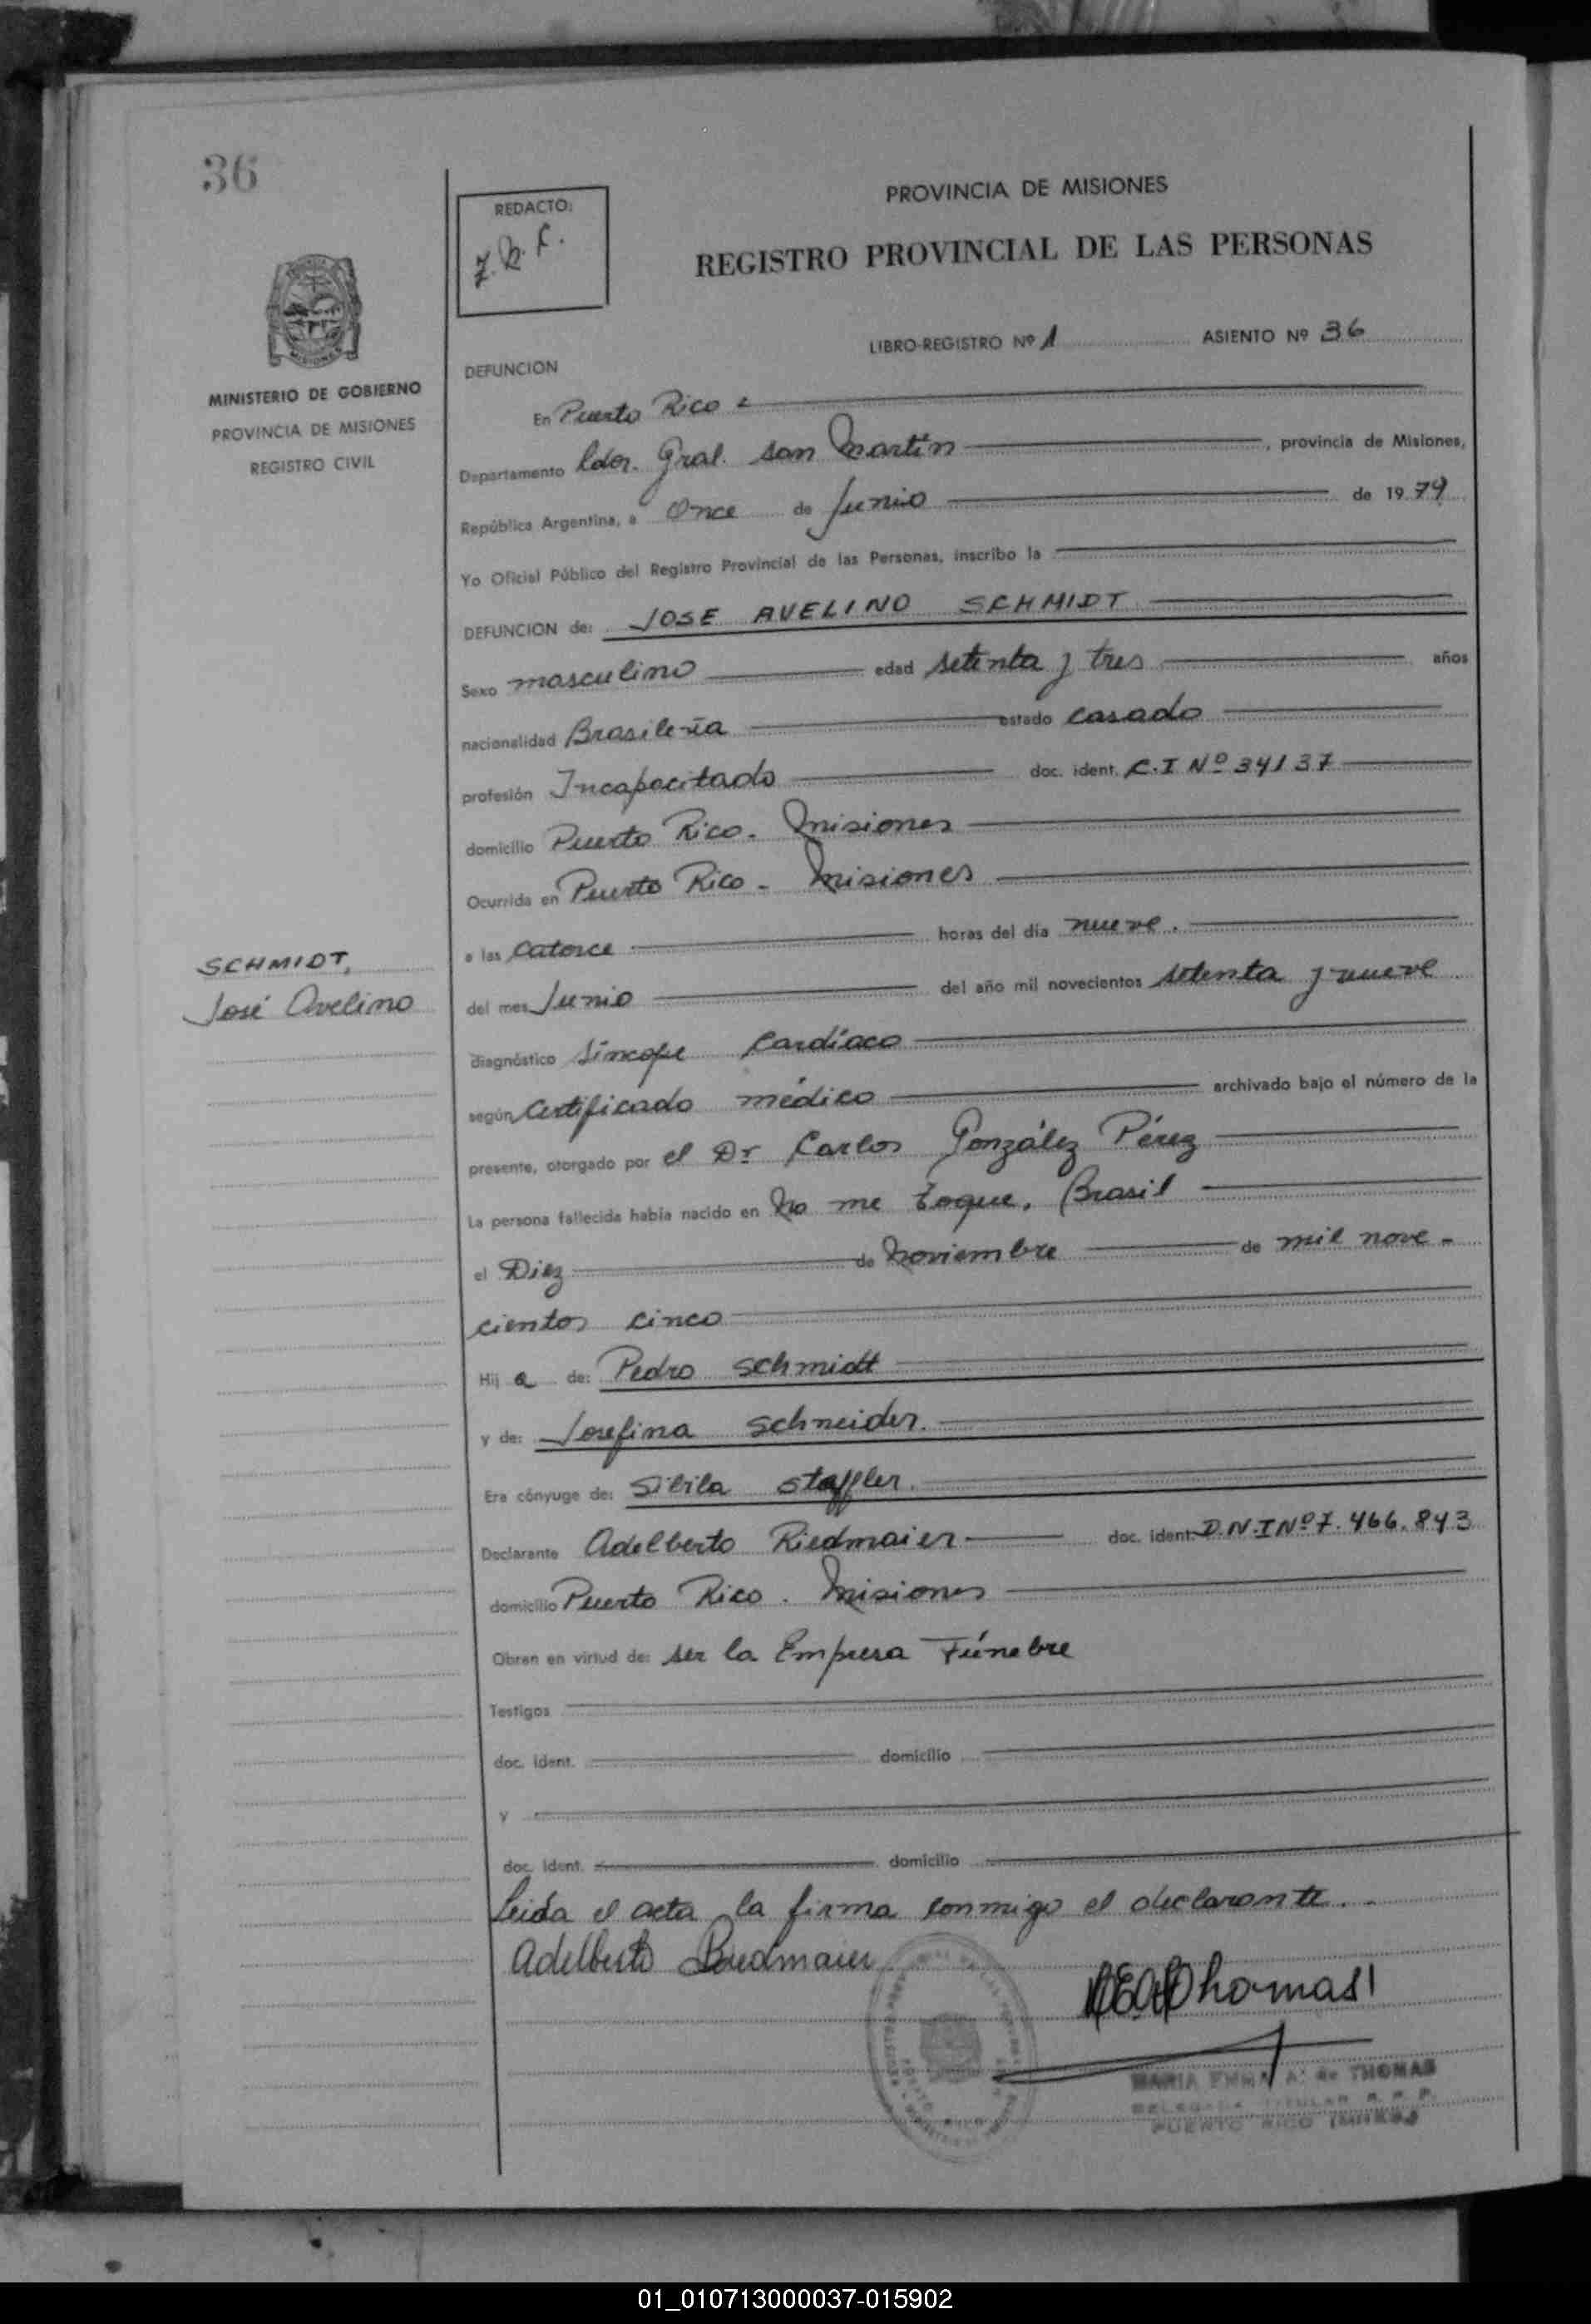 36
REDACTO:
PROVINCIA DE MISIONES
REGISTRO PROVINCIAL DE LAS PERSONAS
LIBRO-REGISTRO Nº 1 ASIENTO Nº 36
MINISTERIO DE GOBIERNO
PROVINCIA DE MISIONES
REGISTRO CIVIL
DEFUNCION
En Puerto Rico
Departamento Ldor. Gral. San Martín, provincia de Misiones,
República Argentina, a Once de Junio de 1979
Yo Oficial Público del Registro Provincial de las Personas, inscribo la
DEFUNCION de: JOSE AVELINO SCHMIDT
Sexo masculino edad setenta y tres años
nacionalidad Brasileña estado casado
profesión Incapacitado doc. ident. C.I Nº 34137
domicilio Puerto Rico - Misiones
Ocurrida en Puerto Rico - Misiones
a las catorce horas del día nueve.
SCHMIDT,
José Avelino
del mes Junio del año mil novecientos setenta y nueve
diagnóstico Síncope Cardíaco
según Certificado médico archivado bajo el número de la
presente, otorgado por el Dr Carlos González Pérez
La persona fallecida había nacido en No me toque, Brasil
el Diez de Noviembre de mil nove-
cientos cinco
Hij o de: Pedro Schmidt
y de: Josefina Schneider.
Era cónyuge de: Sibila Staffler.
Declarante Adelberto Riedmaier doc. ident. D.N.I Nº 7.466.843
domicilio Puerto Rico. Misiones
Obran en virtud de: ser la Empresa Fúnebre
Testigos
doc. ident. domicilio
y
doc. ident. domicilio
Leida el acta la firma conmigo el declarante.
Adelberto Riedmaier
MARIA EMMA A. de THOMAS
DELEGADA TITULAR R. P. P.
PUERTO RICO (MNES.)
01_010713000037-015902